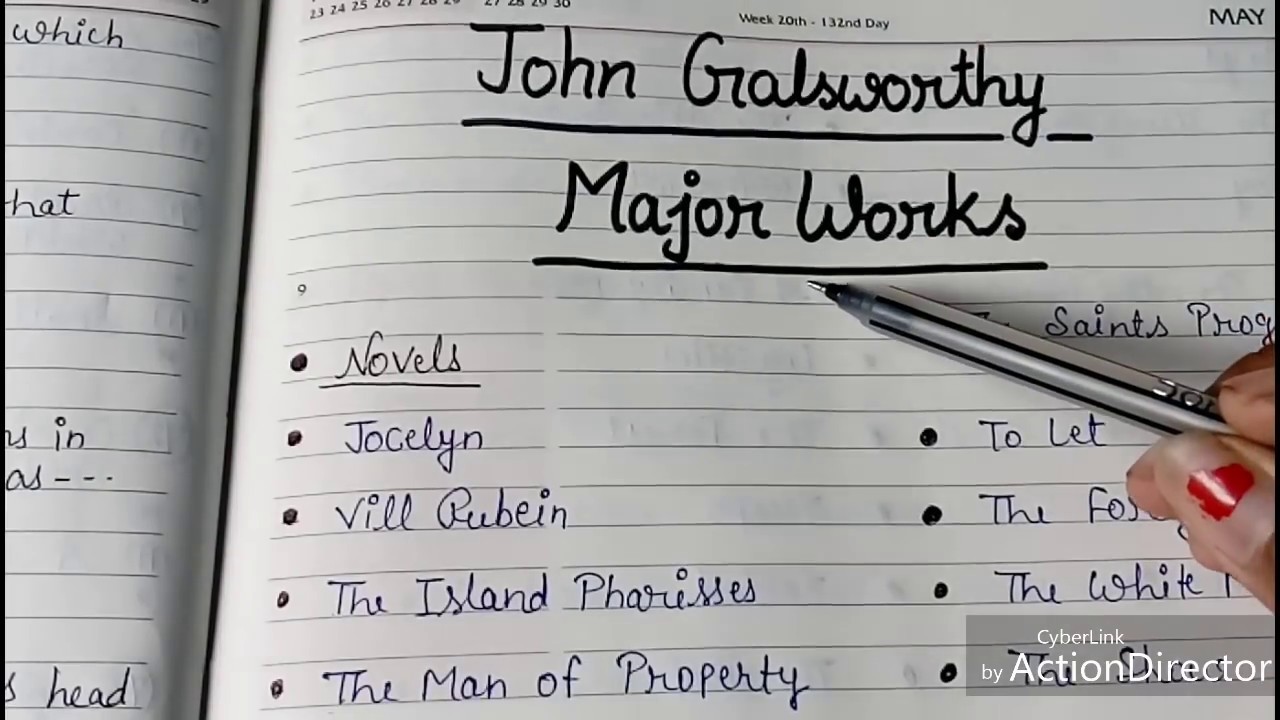 which
hat
s in
as ---
s head
23 24 25 26 27 28 29 27 28 29 30
Week 20th - 132nd Day
MAY
John Galsworthy
Major Works
9
Novels
Saints Prog
Jocelyn
To Let
Vill Rubein
The Fors
The Island Pharisses
The White
The Man of Property
The
CyberLink
by ActionDirector